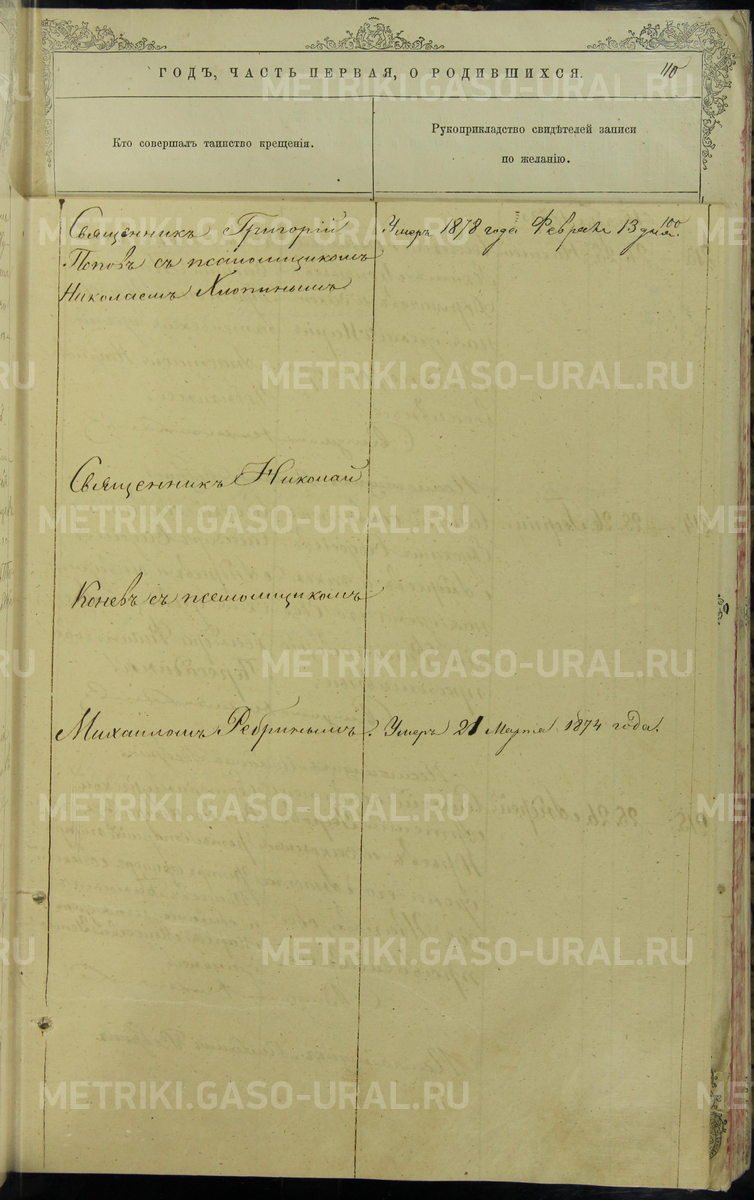 ГОДЪ, ЧАСТЬ ПЕРВАЯ, О РОДИВШИХСЯ.
110
Кто совершалъ таинство крещенія.
Рукоприкладство свидѣтелей записи
по желанію.
100
Священникъ Григорій
Поповъ съ псаломщикомъ
Николаемъ Хлопинымъ
Умеръ 1878 года Февраля 13 дня.
Священникъ Николай
Коневъ съ псаломщикомъ
Михаиломъ Ребринымъ.
Умеръ 21 Марта 1874 года.
METRIKI.GASO-URAL.RU